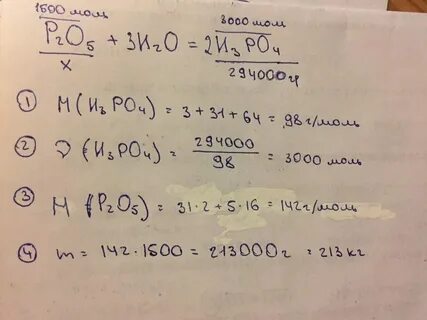 1500 моль 3000 моль
P₂O₅ + 3H₂O = 2H₃PO₄
x 294000гр
① M(H₃PO₄) = 3+31+64 = 98г/моль
② ν(H₃PO₄) = 294000/98 = 3000 моль
③ M(P₂O₅) = 31·2+5·16 = 142г/моль
④ m = 142·1500 = 213000г = 213кг